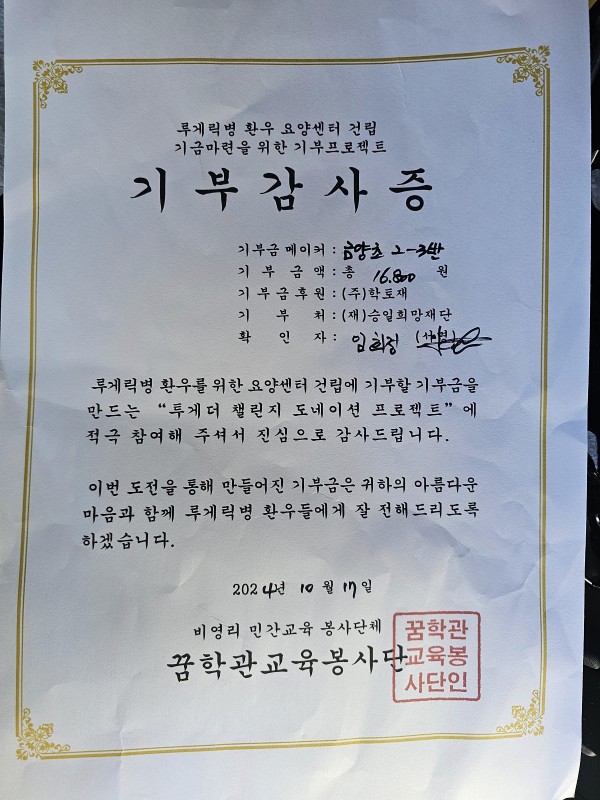 루게릭병 환우 요양센터 건립
기금마련을 위한 기부프로젝트
기부감사증
기부금 메이커 : 금양초 2-3반
기부금액 : 총 16.800 원
기부금후원 : (주)학토재
기부처 : (재)승일희망재단
확인자 : 임희정 (서명)
루게릭병 환우를 위한 요양센터 건립에 기부할 기부금을
만드는 “투게더 챌린지 도네이션 프로젝트”에
적극 참여해 주셔서 진심으로 감사드립니다.
이번 도전을 통해 만들어진 기부금은 귀하의 아름다운
마음과 함께 루게릭병 환우들에게 잘 전해드리도록
하겠습니다.
2024년 10월 17일
비영리 민간교육 봉사단체
꿈학관교육봉사단
꿈학관
교육봉
사단인